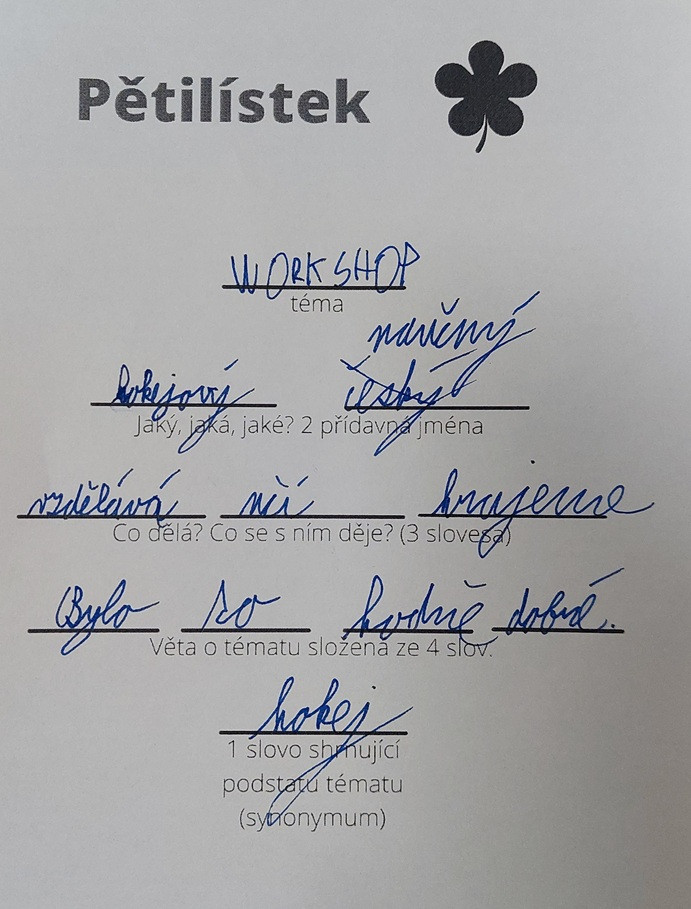 Pětilístek
WORKSHOP
téma
naučný
hokejový český
Jaký, jaká, jaké? 2 přídavná jména
vzdělává učí hrajeme
Co dělá? Co se s ním děje? (3 slovesa)
Bylo to hodně dobré.
Věta o tématu složená ze 4 slov.
hokej
1 slovo shrnující
podstatu tématu
(synonymum)